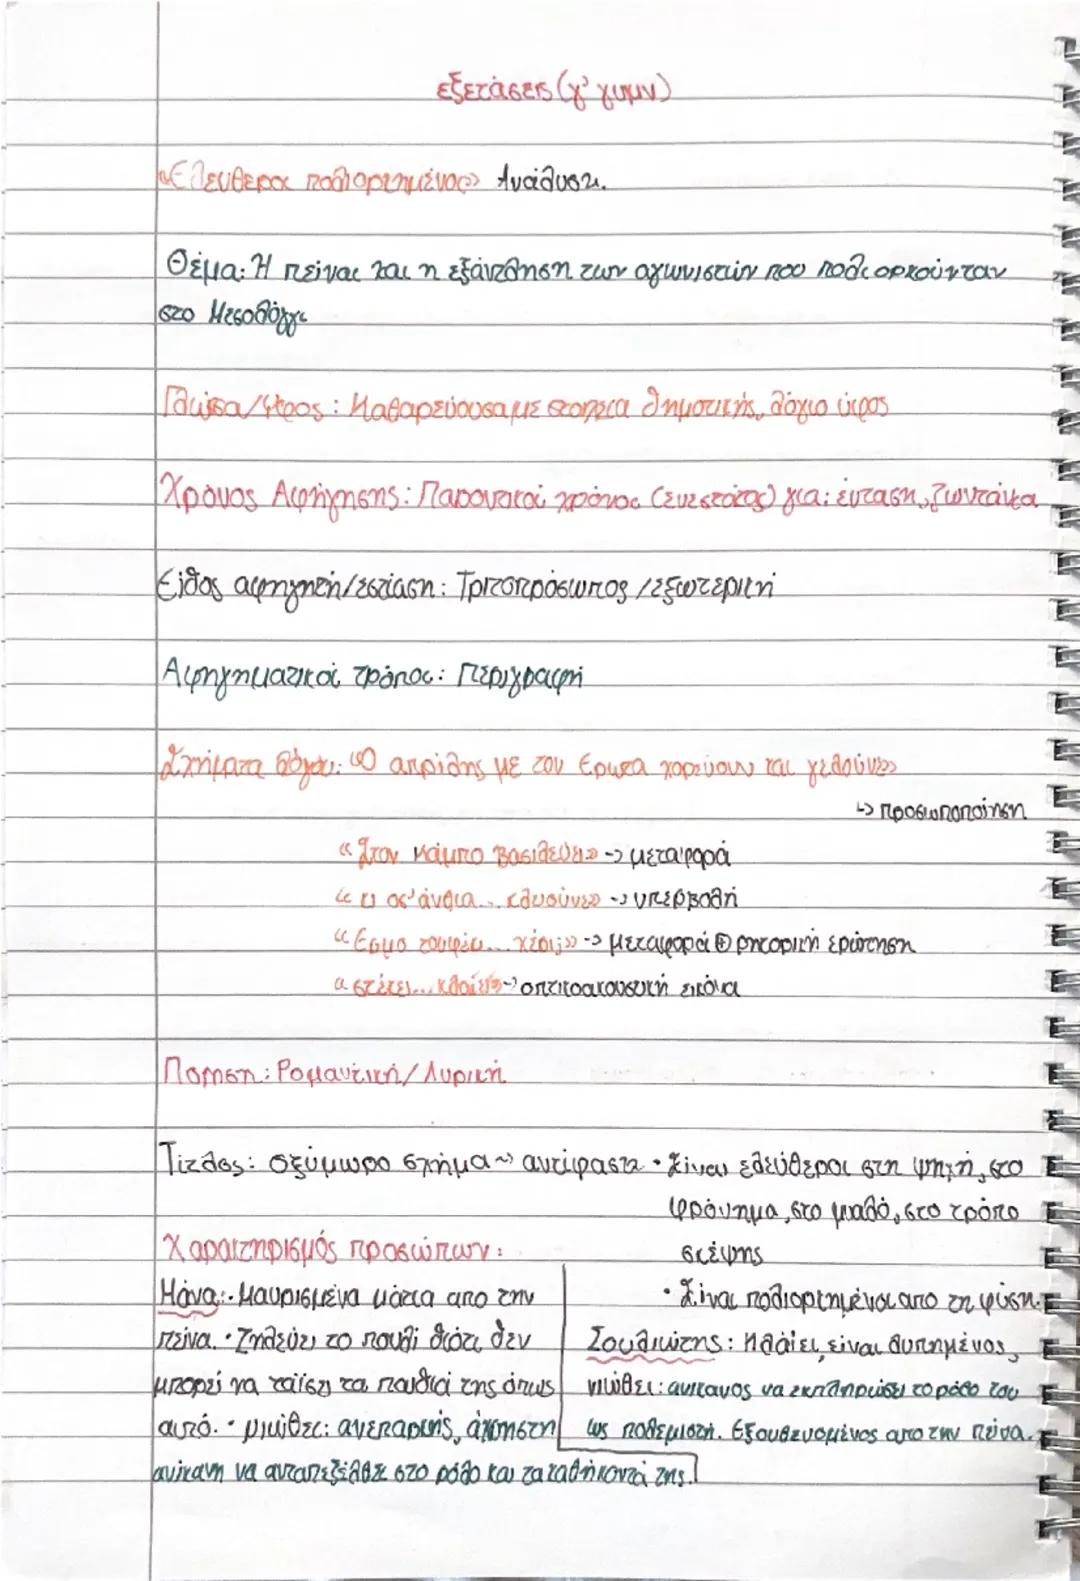 εξετάσεις (γ' γυμν)
«Ελευθεροι πολιορκημένοι» Ανάλυση.
Θέμα: Η πείνα και η εξάντληση των αγωνιστών που πολιορκούνταν
στο Μεσολόγγι
Γλώσσα/ύφος: Καθαρεύουσα με στοιχεία δημοτικής, λόγιο ύφος
Χρόνος Αφήγησης: Παροντικοί χρόνοι (Ενεστώτας) για: ένταση, ζωντάνια
Είδος αφηγητή/εστίαση: Τριτοπρόσωπος /εξωτερική
Αφηγηματικοί τρόποι: Περιγραφή
Σχήματα λόγου: «Ο απρίλης με τον Ερωτα χορεύουν και γελούνε»
↳ προσωποποίηση
«Στον κάμπο βασιλεύει» -> μεταφορά
«κι οσ' άνθια... κλυσούνε» -> υπερβολή
«Έσμο τουφέκι... χέρι;» -> μεταφορά ⊕ ρητορική ερώτηση
«στέκει... κλαίει» -> οπτικοακουστική εικόνα
Ποίηση: Ρομαντική/Λυρική
Τίτλος: οξύμωρο σχήμα ~> αντίφαση • Είναι ελεύθεροι στη ψυχή, στο
φρόνημα, στο μυαλό, στο τρόπο
σκέψης
• Είναι πολιορκημένοι απο τη φύση.
Χαρακτηρισμός προσώπων:
Μάνα: • Μαυρισμένα μάτια απο την
πείνα. • Ζηλεύει το πουλί διότι δεν
μπορεί να ταϊσει τα παιδιά της όπως
αυτό. • νιώθει: ανεπαρκής, άχρηστη
ανίκανη να ανταπεξέλθει στο ρόλο και τα καθήκοντά της.
Σουλιώτης: Κλαίει, είναι λυπημένος,
νιώθει: ανικανος να εκπληρώσει το ρόλο του
ως πολεμιστή. Εξουθενωμένος απο την πείνα.